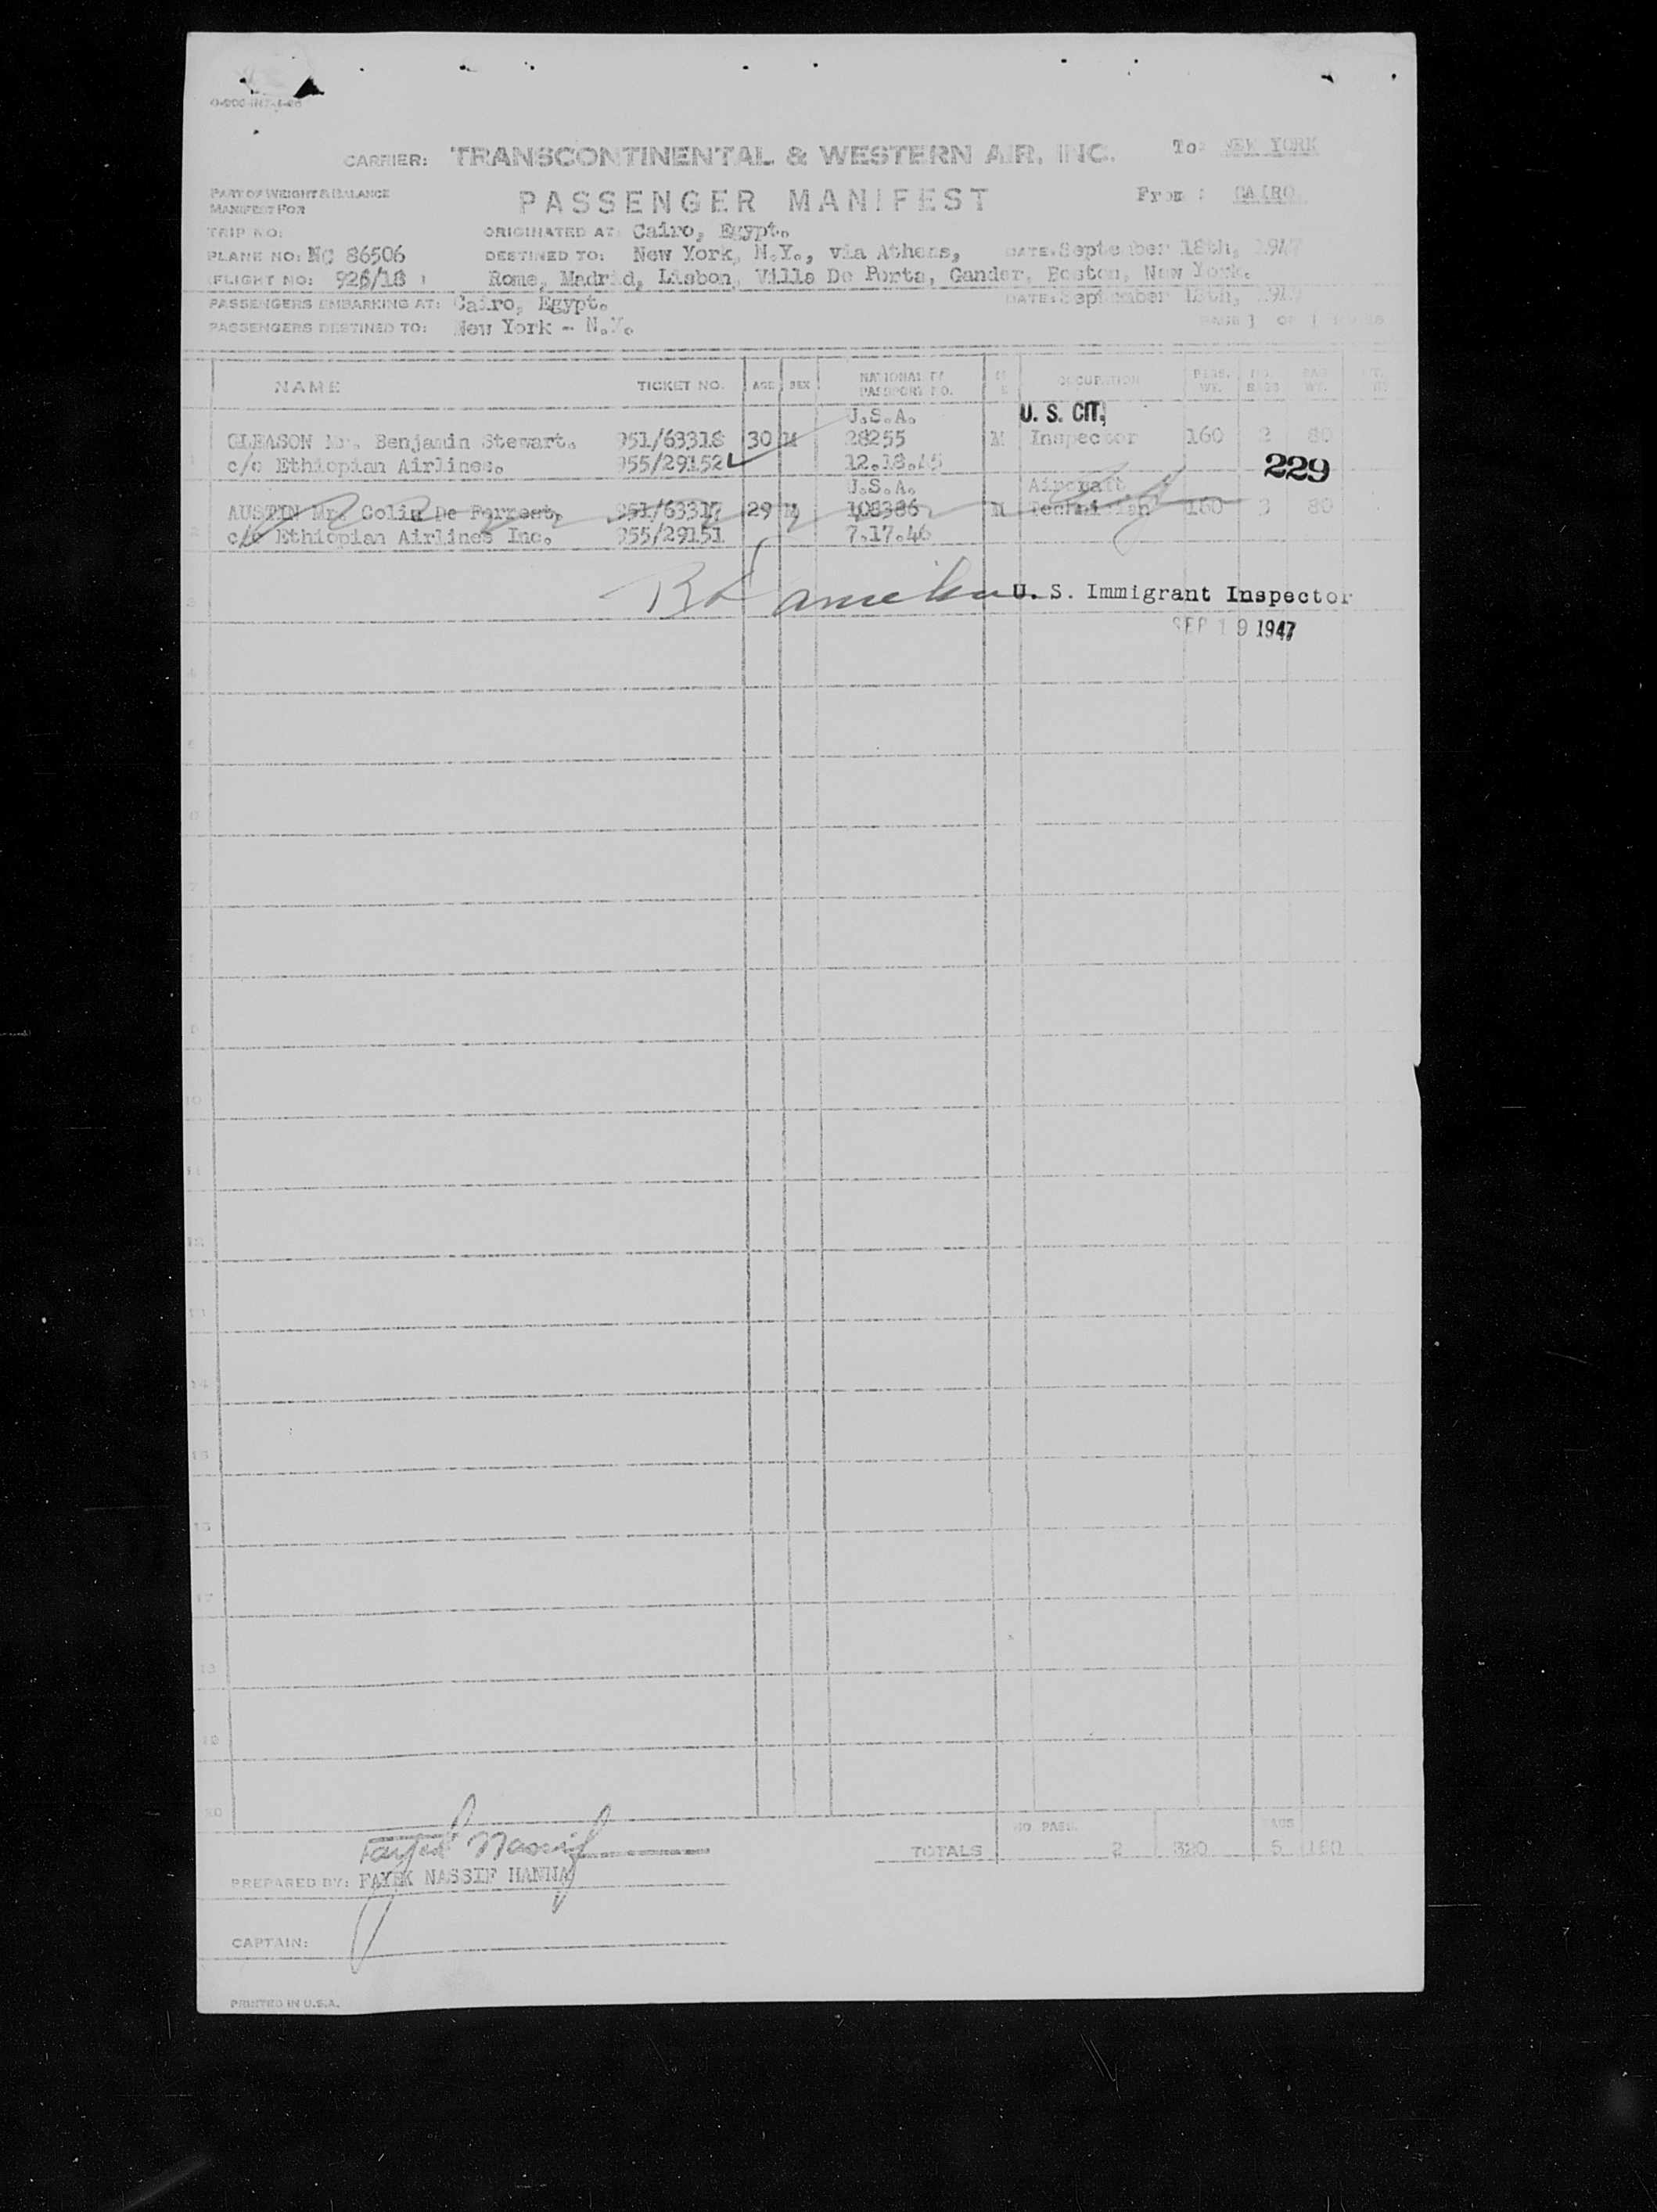 CARRIER: TRANSCONTINENTAL & WESTERN AIR, INC. To: NEW YORK
PART OF WEIGHT & BALANCE
MANIFEST FOR
PASSENGER MANIFEST From : CAIRO
TRIP NO: ORIGINATED AT: Cairo, Egypt.
PLANE NO: NC 86506 DESTINED TO: New York, N.Y., via Athens, DATE: September 18th, 1947
FLIGHT NO: 926/18 Rome, Madrid, Lisbon, Villa De Porta, Gander, Boston, New York.
PASSENGERS EMBARKING AT: Cairo, Egypt. DATE: September 18th, 194
PASSENGERS DESTINED TO: New York - N.Y. PAGE 1 OF 1
NAME TICKET NO. AGE SEX NATIONALITY PASSPORT NO. OCCUPATION PASS. WT. NO. BAGS BAG WT.
U.S.A. U. S. CIT.
GLEASON Mr. Benjamin Stewart. 951/63318 30 M 28255 M Inspector 160 2 80
1 c/o Ethiopian Airlines. 955/29152 12.18.45 229
U.S.A. Aircraft
AUSTIN Mr. Colin De Forrest, 951/63317 29 M 108386 M Technician 160 3 80
2 c/o Ethiopian Airlines Inc. 955/29151 7.17.46
3 U. S. Immigrant Inspector
SEP 19 1947
4
5
6
7
8
9
10
11
12
13
14
15
16
17
18
19
20
NO. PASS. BAGS
TOTALS 2 320 5 160
Fayek Nassif
PREPARED BY: FAYEK NASSIF HANNA
CAPTAIN:
PRINTED IN U.S.A.